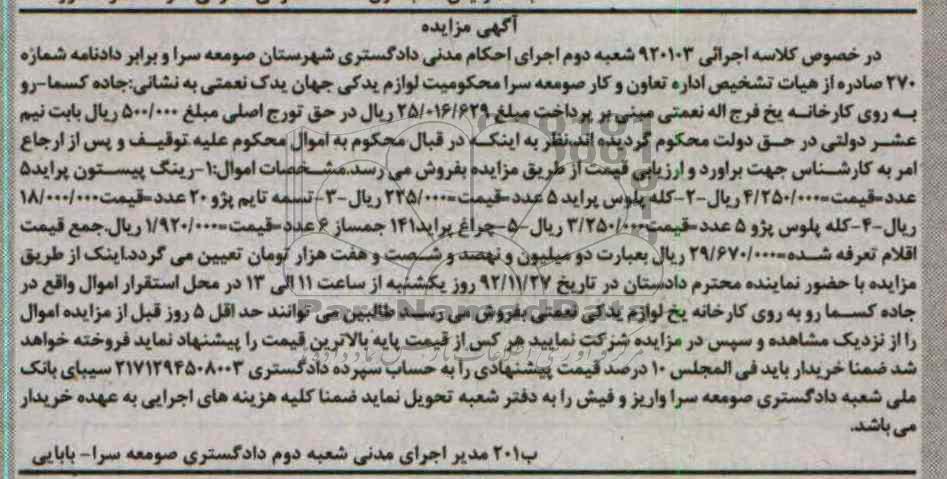 آگهی مزایده
در خصوص کلاسه اجرائی ۹۲۰۱۰۳ شعبه دوم اجرای احکام مدنی دادگستری شهرستان صومعه سرا و برابر دادنامه شماره
۲۷۰ صادره از هیات تشخیص اداره تعاون و کار صومعه سرا محکومیت لوازم یدکی جهان یدک نعمتی به نشانی:جاده کسما-رو
به روی کارخانه یخ فرج اله نعمتی مبنی بر پرداخت مبلغ ۲۵/۰۱۶/۶۲۹ ریال در حق تورج اصلی مبلغ ۵۰۰/۰۰۰ ریال بابت نیم
عشر دولتی در حق دولت محکوم گردیده اند.نظر به اینکه در قبال محکوم به اموال محکوم علیه توقیف و پس از ارجاع
امر به کارشناس جهت براورد و ارزیابی قیمت از طریق مزایده بفروش می رسد.مشخصات اموال:۱-رینگ پیستون پراید۵
عدد=قیمت=۴/۲۵۰/۰۰۰ ریال-۲-کله پلوس پراید ۵ عدد=قیمت=۲۲۵/۰۰۰ ریال-۳-تسمه تایم پژو ۲۰ عدد=قیمت=۱۸/۰۰۰/۰۰۰
ریال-۴-کله پلوس پژو ۵ عدد=قیمت=۳/۲۵۰/۰۰۰ ریال-۵-چراغ پراید۱۴۱ جمساز ۶ عدد=قیمت=۱/۹۲۰/۰۰۰ ریال.جمع قیمت
اقلام تعرفه شده=۲۹/۶۷۰/۰۰۰ ریال بعبارت دو میلیون و نهصد و شصت و هفت هزار تومان تعیین می گردد.اینک از طریق
مزایده با حضور نماینده محترم دادستان در تاریخ ۹۲/۱۱/۲۷ روز یکشنبه از ساعت ۱۱ الی ۱۳ در محل استقرار اموال واقع در
جاده کسما رو به روی کارخانه یخ لوازم یدکی نعمتی بفروش می رسد طالبین می توانند حد اقل ۵ روز قبل از مزایده اموال
را از نزدیک مشاهده و سپس در مزایده شرکت نمایید هر کس از قیمت پایه بالاترین قیمت را پیشنهاد نماید فروخته خواهد
شد ضمنا خریدار باید فی المجلس ۱۰ درصد قیمت پیشنهادی را به حساب سپرده دادگستری ۲۱۷۱۲۹۴۵۰۸۰۰۳ سیبای بانک
ملی شعبه دادگستری صومعه سرا واریز و فیش را به دفتر شعبه تحویل نماید ضمنا کلیه هزینه های اجرایی به عهده خریدار
می باشد.
ب۲۰۱ مدیر اجرای مدنی شعبه دوم دادگستری صومعه سرا- بابایی
ParsNamadData